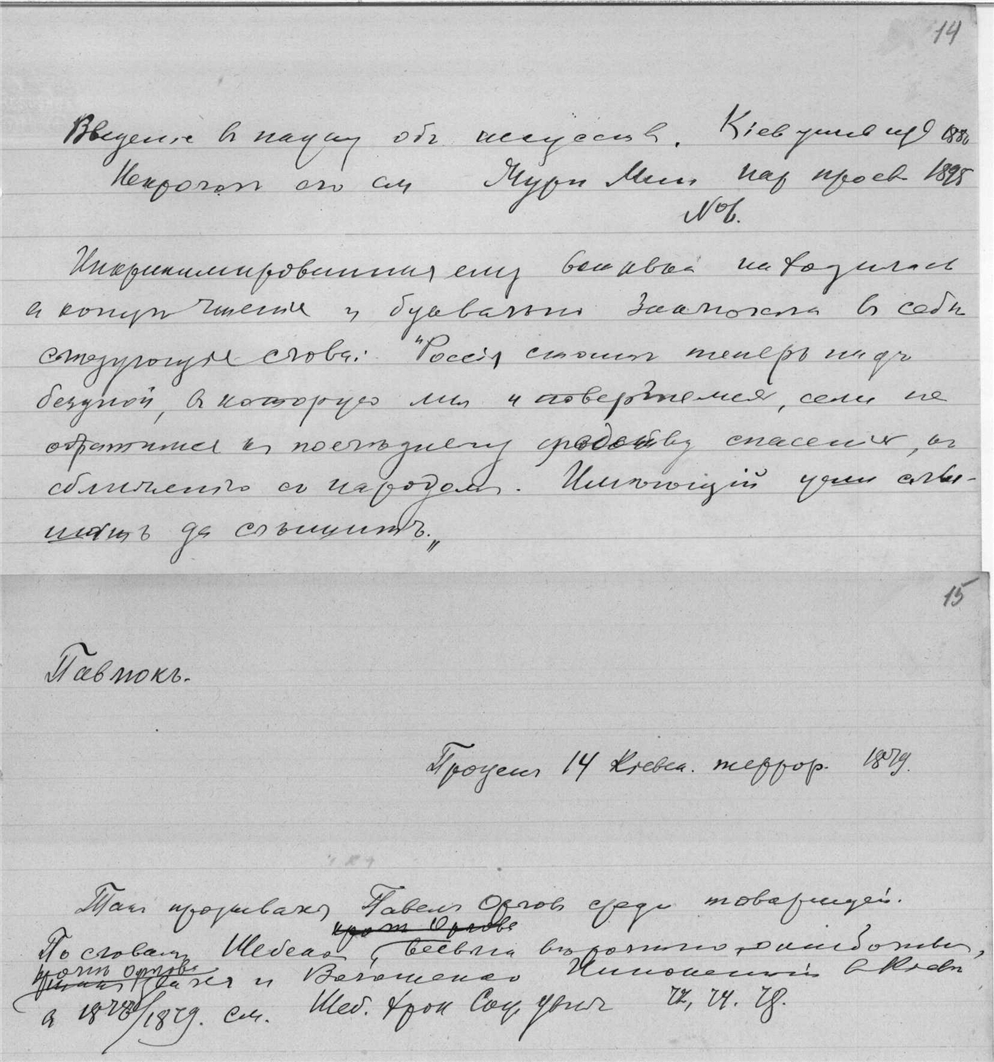 14
Введение в науку объ искусстве. Кіев унив изд 1880
Некролог его см Журн Мин нар просв 1895
№ 6.
Инкриминированная ему находилась
в конце чтенія и буквально заключала в себе
следующія слова: "Россія стоитъ теперь надъ
бездной, в которую мы и повергнемся, если не
обратимся къ последнему средству спасенія, къ
сближенію съ народомъ. Имеющій уши слы-
шать да слышитъ."
15
Павлюкъ.
Процесс 14 Кіевск. террор. 1879.
Такъ прозывали Павелъ Орловъ среди товарищей.
По словамъ Шебеко, весьма вероятно ошибочны,
кроме Орлова и Волошенко Иннокентій в Кіеве
в 1878/1879. см. Шеб. Хрон Соц движ 72, 74. 78.